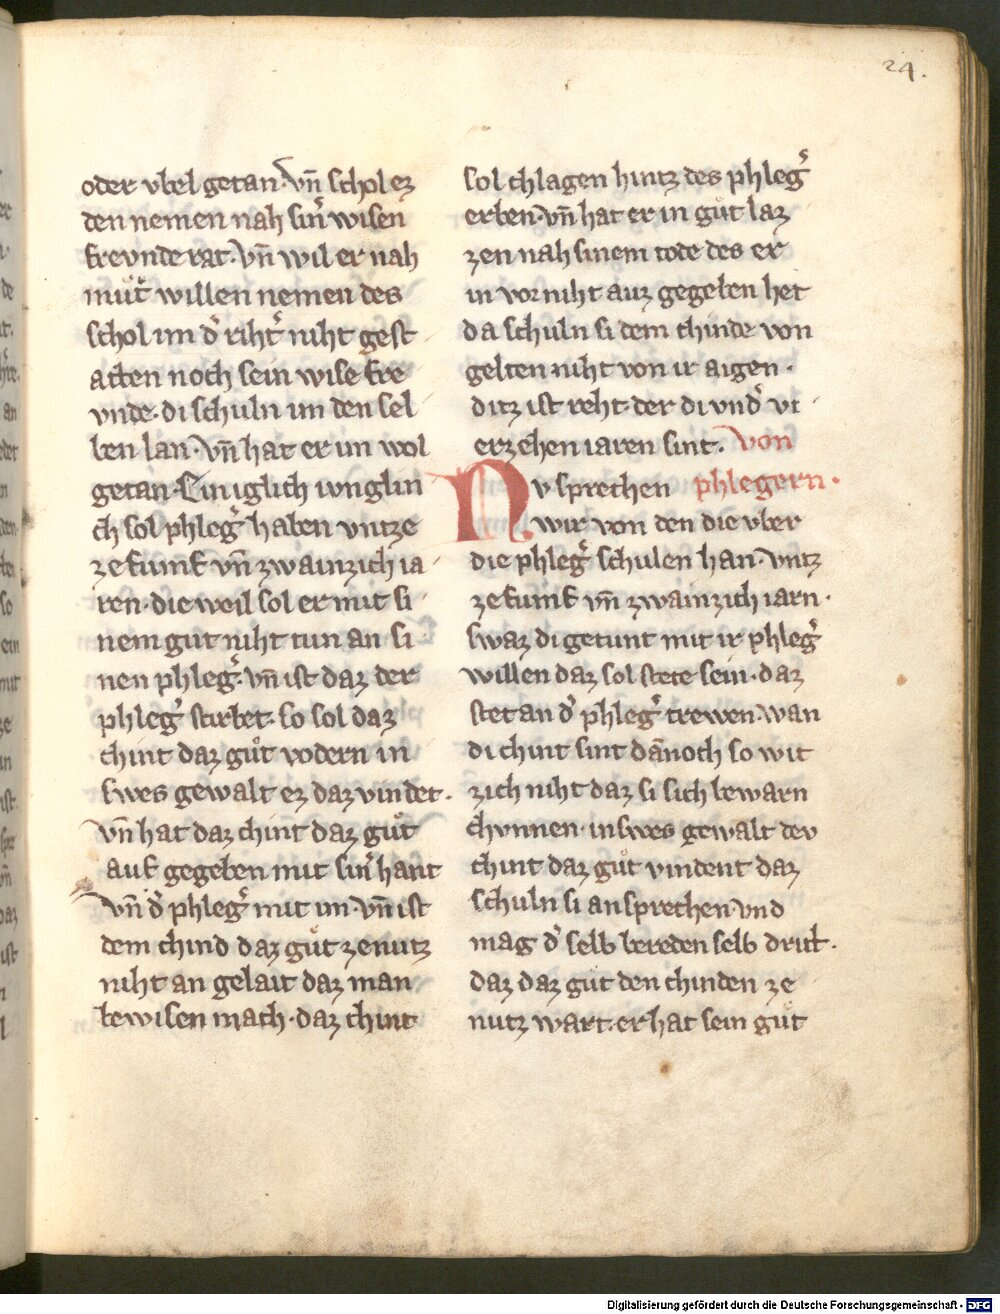 24.
oder vbel getan. vn̄ schol ez
den nemen nah sin͛ wisen
frevnde rat. vn̄ wil er nah
mu̍t willen nemen des
schol im d͛ riht͛ niht gest
atten noch sein wise fre
vnde. di schuln im den sel
ben lan. vn̄ hat er im wol
getan. Ein iglich ivnglin
ch sol phleg͛ haben vntze
ze funf vn̄ zwainzich ia
ren. die weil sol er mit si
nem gut niht tun an si
nen phleg͛. vn̄ ist daz der
phleg͛ stirbet. so sol daz
chint daz guͦt vodern in
swes gewalt ez daz vindet.
vn̄ hat daz chint daz guͦt
auf gegeben mit sin͛ hant
vn̄ d͛ phleg͛ mit im. vn̄ ist
dem chind daz guͦt ze nutz
niht an gelait daz man
bewisen mach. daz chint
sol chlagen hintz des phleg͛
erben. vn̄ hat er in guͦt laz
zen nah sinem tode des er
in vor niht auz gegeben het
da schuln si dem chinde von
gelten niht von ir aigen.
ditz ist reht. der di vnd͛ vi
erzehen iaren sint. von
phlegern.
Nv sprechen
wir von den die vber
die phleg͛ schulen han. vntz
ze funf vn̄ zwainzich iarn.
swaz di getunt mit ir phleg͛
willen daz sol stete sein. daz
stet an d͛ phleg͛ trewen. wan
di chint sint dānoch so wit
zich niht daz si sich bewarn
chvnnen. in swes gewalt dev
chint daz guͦt vindent daz
schuln si ansprechen vnd
mag d͛ selb bereden selb drit.
daz daz gut den chinden ze
nutz wart. er hat sein guͦt
Digitalisierung gefördert durch die Deutsche Forschungsgemeinschaft - DFG